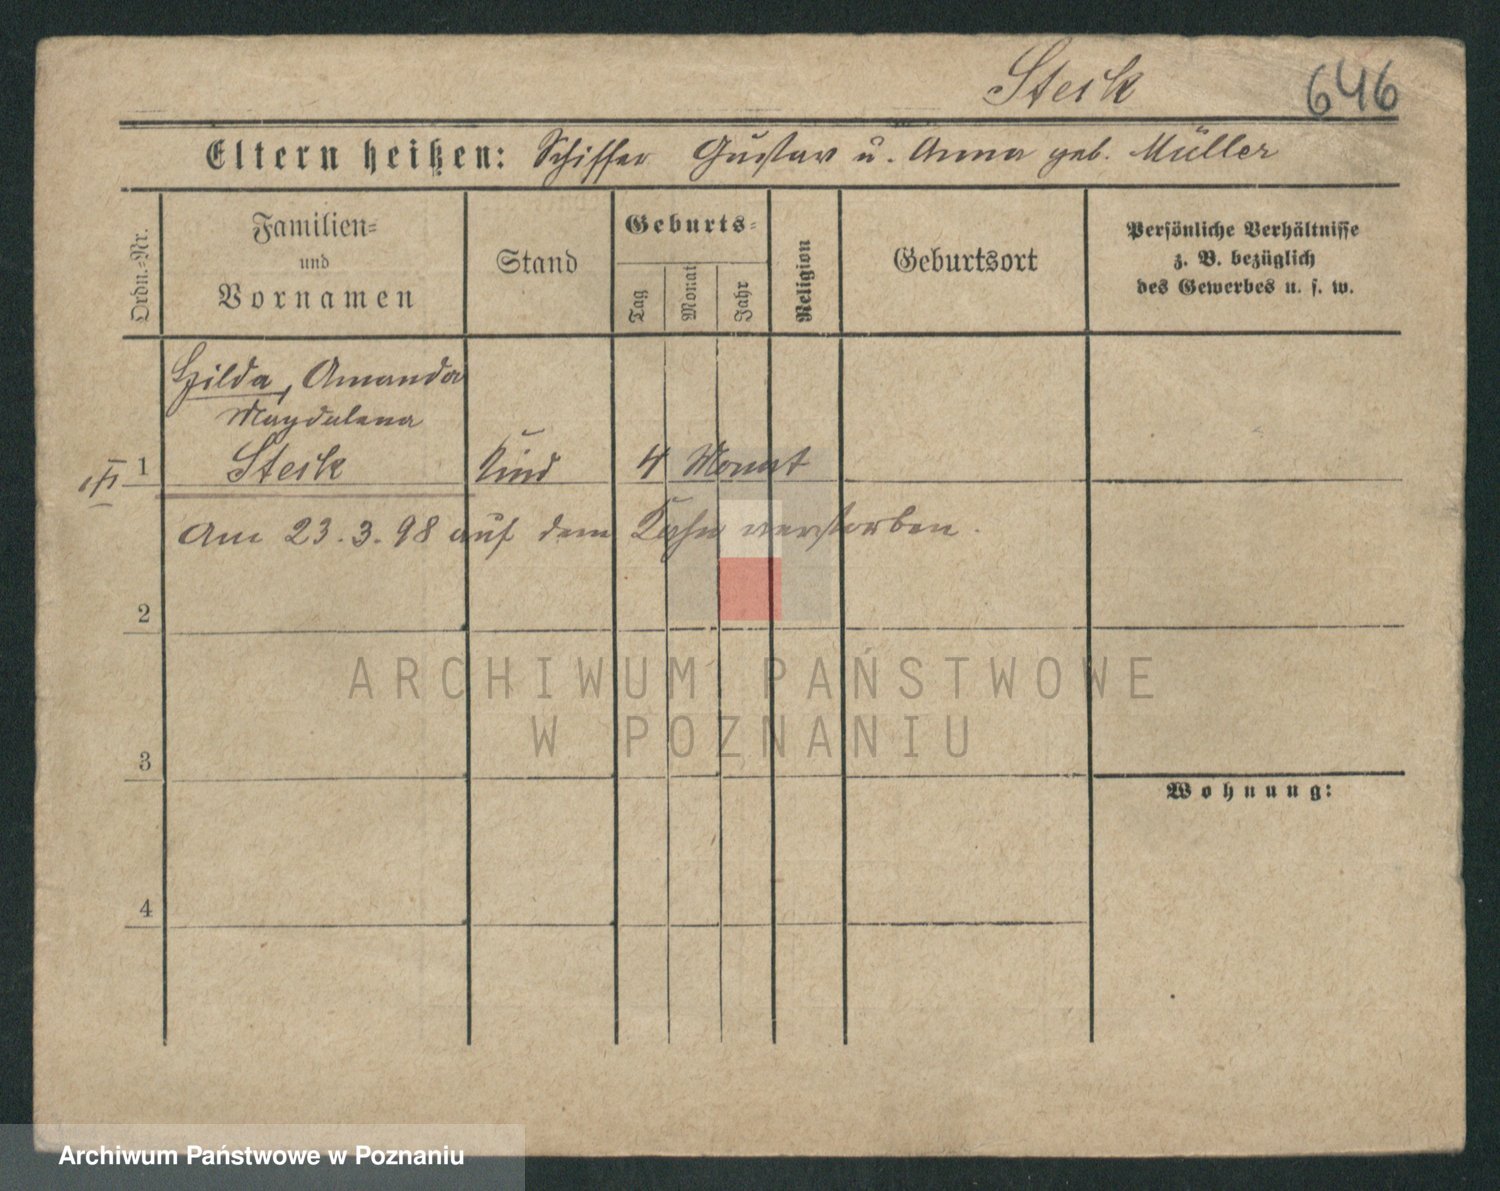 Steik
646
Eltern heißen: Schiffer Gustav u. Anna geb. Müller
Ordn.-Nr.
Familien-
und
Vornamen
Stand
Geburts-
Tag
Monat
Jahr
Religion
Geburtsort
Persönliche Verhältnisse
z. B. bezüglich
des Gewerbes u. s. w.
Hilda, Amanda
Magdalena
1 Steik Kind 4 Monat
Am 23.3.98 auf dem Kahn verstorben.
2
3
4
Wohnung:
ARCHIWUM PAŃSTWOWE
W POZNANIU
Archiwum Państwowe w Poznaniu